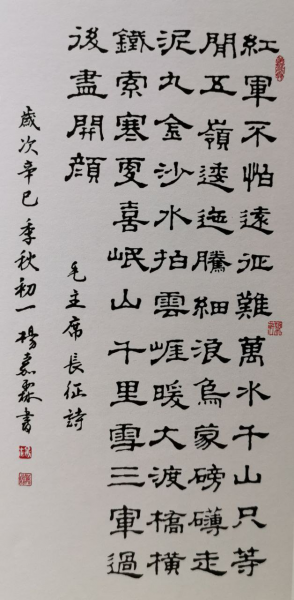 紅軍不怕遠征難萬水千山只等
閒五嶺逶迤騰細浪烏蒙磅礴走
泥丸金沙水拍雲崖暖大渡橋橫
鐵索寒更喜岷山千里雪三軍過
後盡開顏
毛主席長征詩
歲次辛巳季秋初一楊嘉霖書